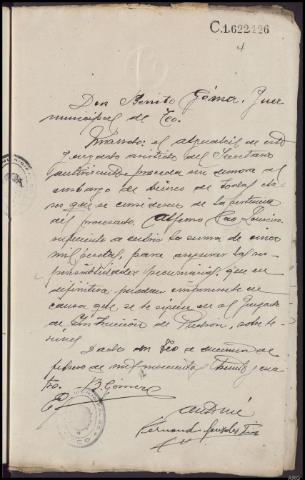 C.1.622426
4
Don Benito Gómez, Juez
municipal de Teo.
Mando: al alguacil de este
Juzgado asistido del Secretario
autorizante proceda sin demora al
embargo de bienes de
que se consideren de la pertenencia
del procesado Alfonso
suficiente a cubrir la suma de cinco
mil pesetas, para asegurar las res-
ponsabilidades pecuniarias, que en
definitiva puedan imponerse en
causa que se le sigue en el Juzgado
de Instrucción de Padrón, sobre le-
siones
Dado en Teo a de
febrero de mil novecientos treinta y cua
tro. B. Gómez
Ante mí
Fernando González